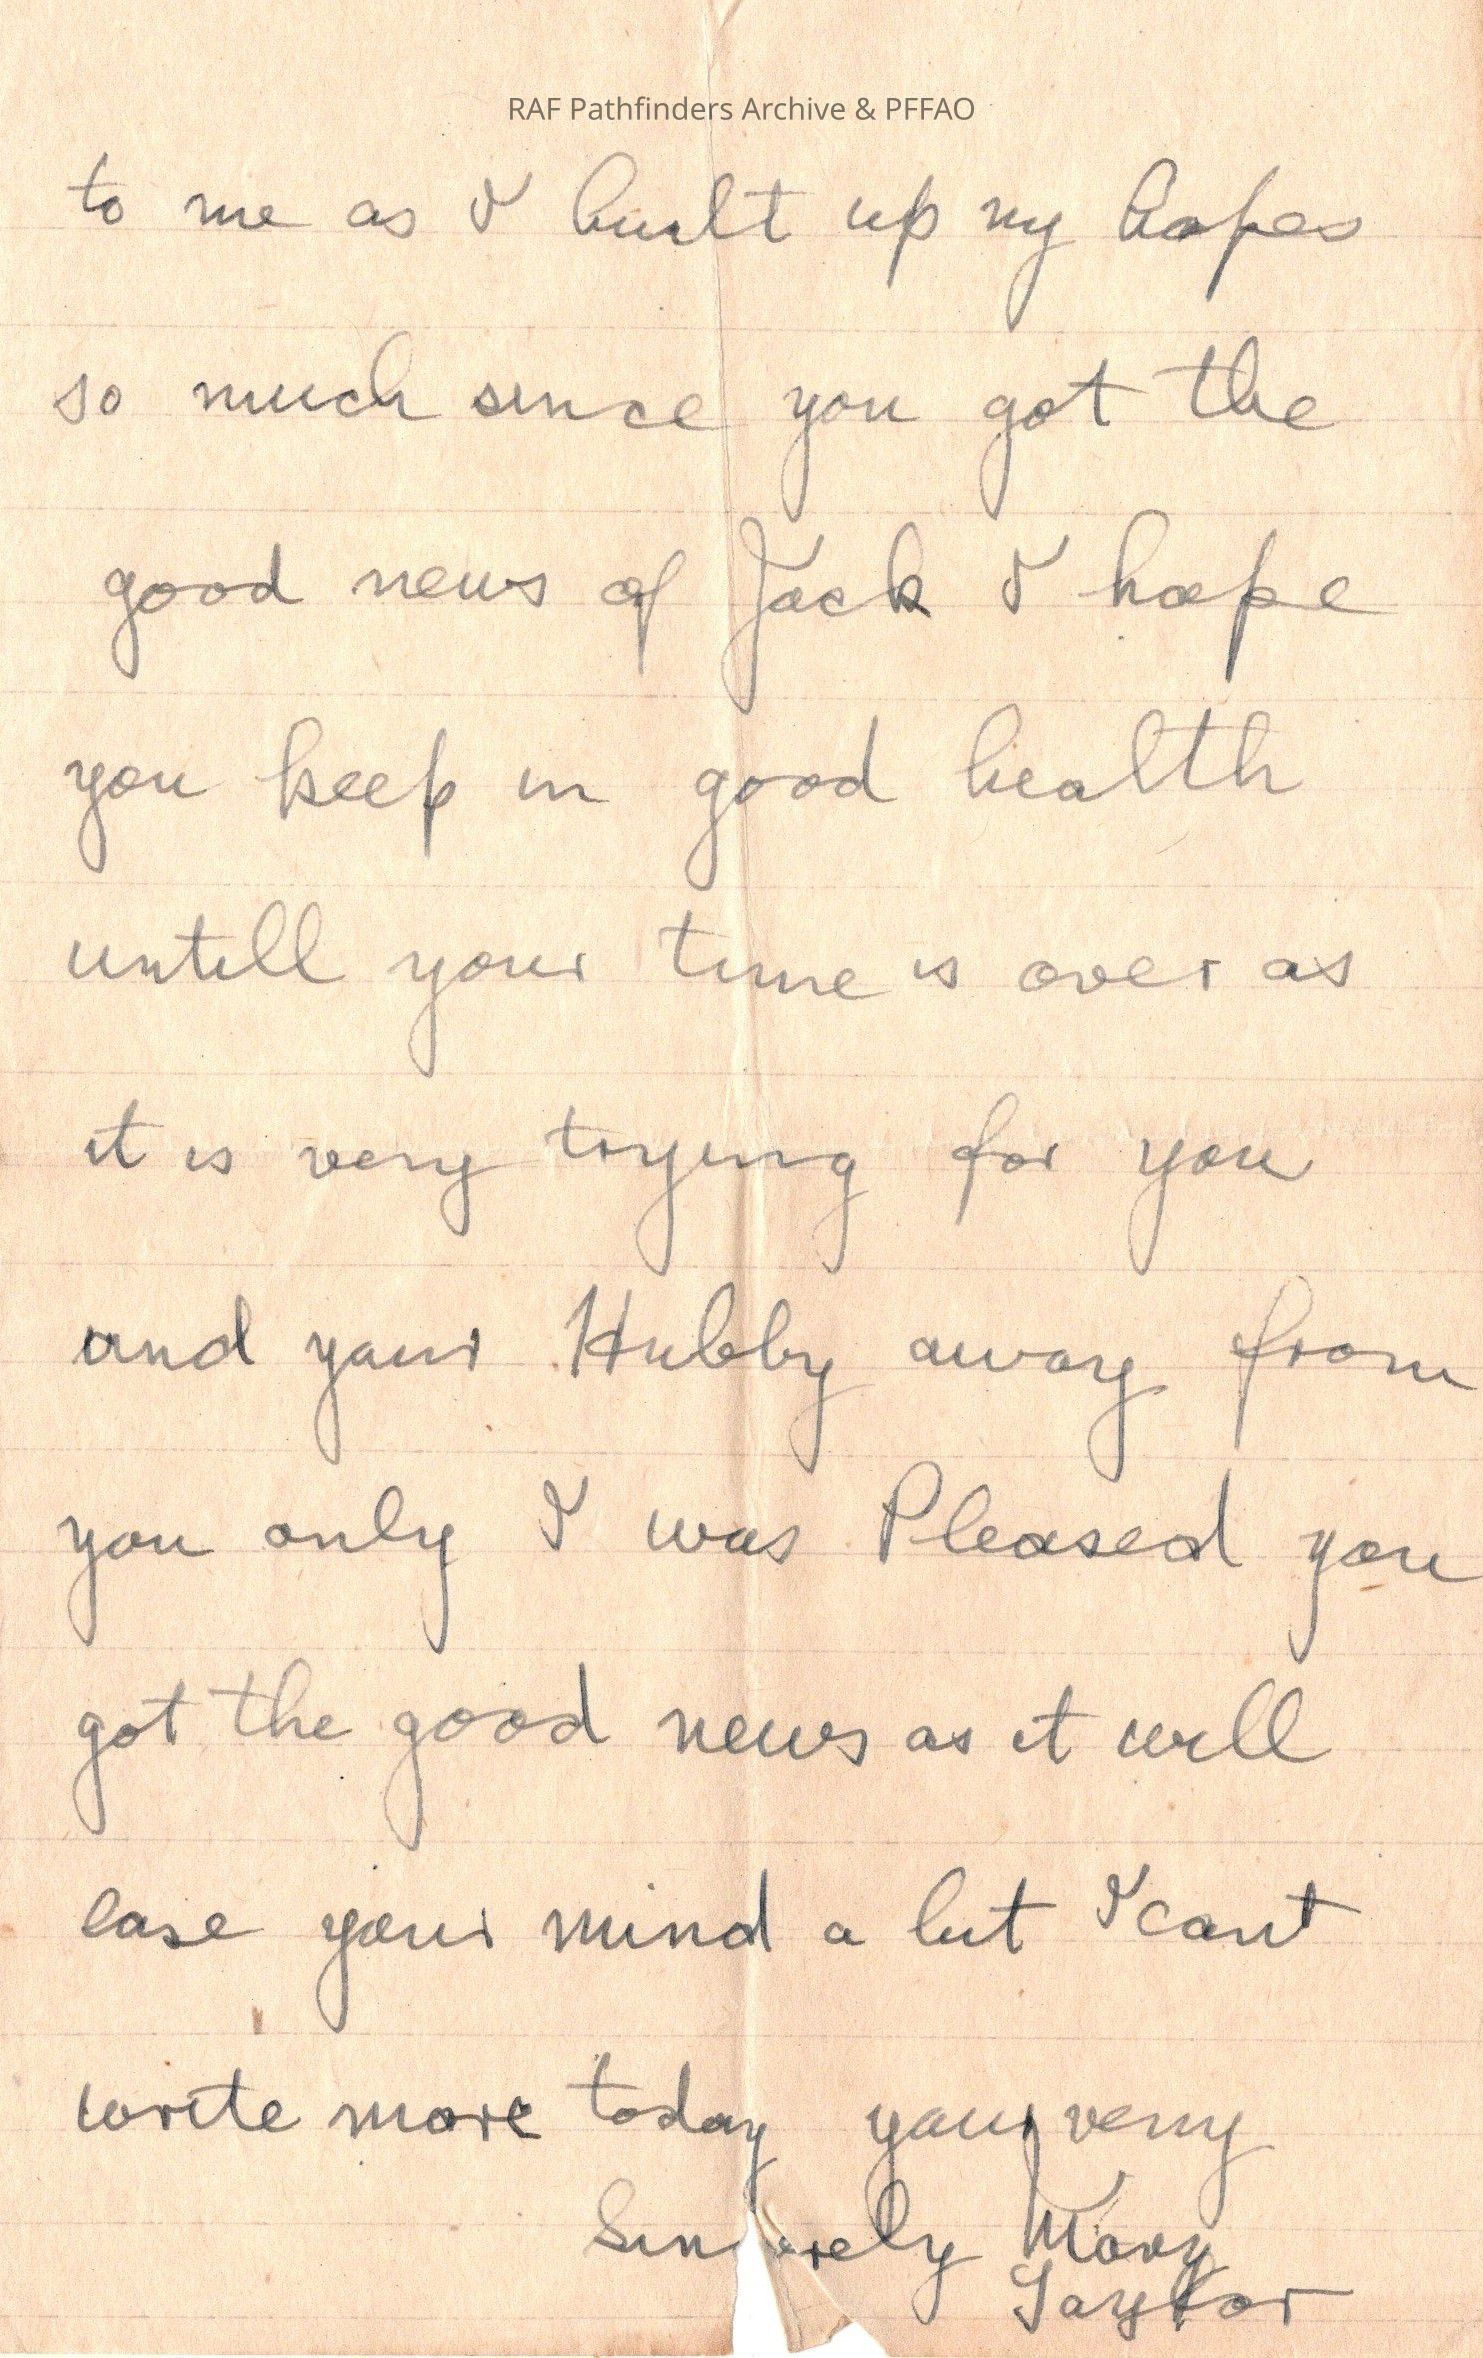 RAF Pathfinders Archive & PFFAO
to me as I built up my hopes
so much since you got the
good news of Jack I hope
you keep in good health
untill your time is over as
it is very trying for you
and your Hubby away from
you only I was Pleased you
got the good news as it will
ease your mind a lut I cant
write more today your very
Sincerely Mary
Taylor